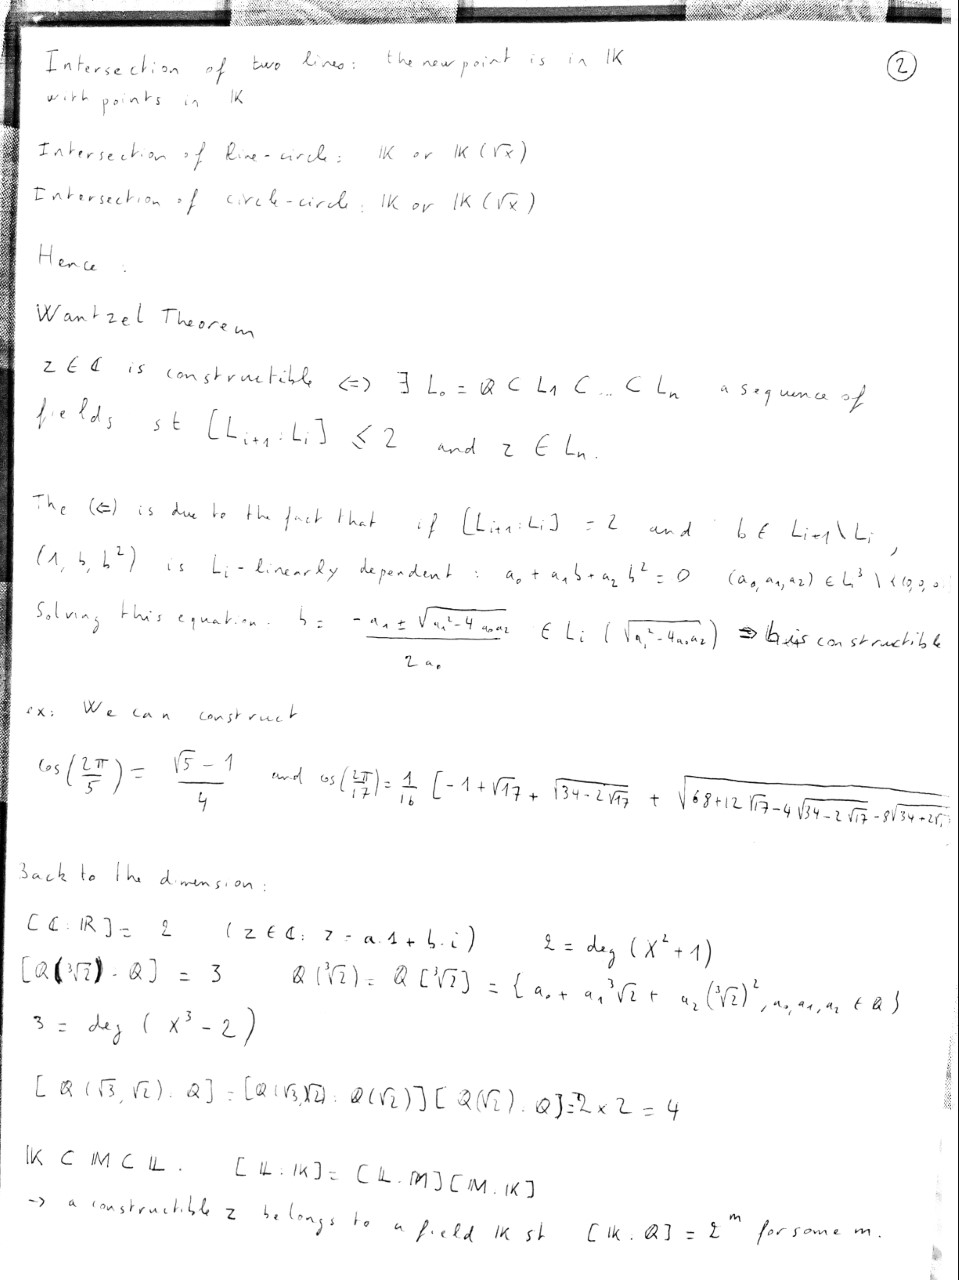 ②
Intersection of two lines: the new point is in 𝕂
with points in 𝕂
Intersection of line-circle: 𝕂 or 𝕂(√x)
Intersection of circle-circle: 𝕂 or 𝕂(√x)
Hence :
Wantzel Theorem
z ∈ ℂ is constructible <=> ∃ L₀ = ℚ ⊂ L₁ ⊂ ... ⊂ Lₙ a sequence of
fields st [Lᵢ₊₁:Lᵢ] ≤ 2 and z ∈ Lₙ.
The (⇐) is due to the fact that if [Lᵢ₊₁:Lᵢ] = 2 and b ∈ Lᵢ₊₁\Lᵢ,
(1, b, b²) is Lᵢ-linearly dependent : a₀ + a₁b + a₂b² = 0 (a₀, a₁, a₂) ∈ Lᵢ³ \ {(0,0,0
Solving this equation. b = (-a₁ ± √(a₁²-4a₀a₂))/(2a₀) ∈ Lᵢ(√(a₁²-4a₀a₂)) ⇒ b is constructible
ex: We can construct
cos(2π/5) = (√5 - 1)/4 and cos(2π/17) = 1/16 [-1+√17 + √(34-2√17) + √(68+12√17-4√(34-2√17)-8√(34+2√1
Back to the dimension:
[ℂ:ℝ] = 2 (z ∈ ℂ: z = a.1 + b.i) 2 = deg (X²+1)
[ℚ(³√2):ℚ] = 3 ℚ(³√2) = ℚ[³√2] = {a₀ + a₁³√2 + a₂(³√2)², a₀, a₁, a₂ ∈ ℚ}
3 = deg (X³-2)
[ℚ(√3,√2):ℚ] = [ℚ(√3,√2):ℚ(√2)][ℚ(√2):ℚ] = 2×2 = 4
𝕂 ⊂ 𝕄 ⊂ 𝕃. [𝕃:𝕂] = [𝕃:𝕄][𝕄:𝕂]
-> a constructible z belongs to a field 𝕂 st [𝕂:ℚ] = 2ᵐ for some m.